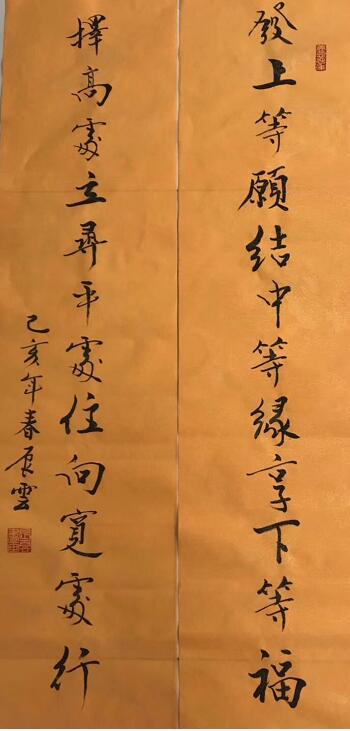 發上等願結中等緣享下等福
擇高處立尋平處住向寬處行
己亥年春良雲